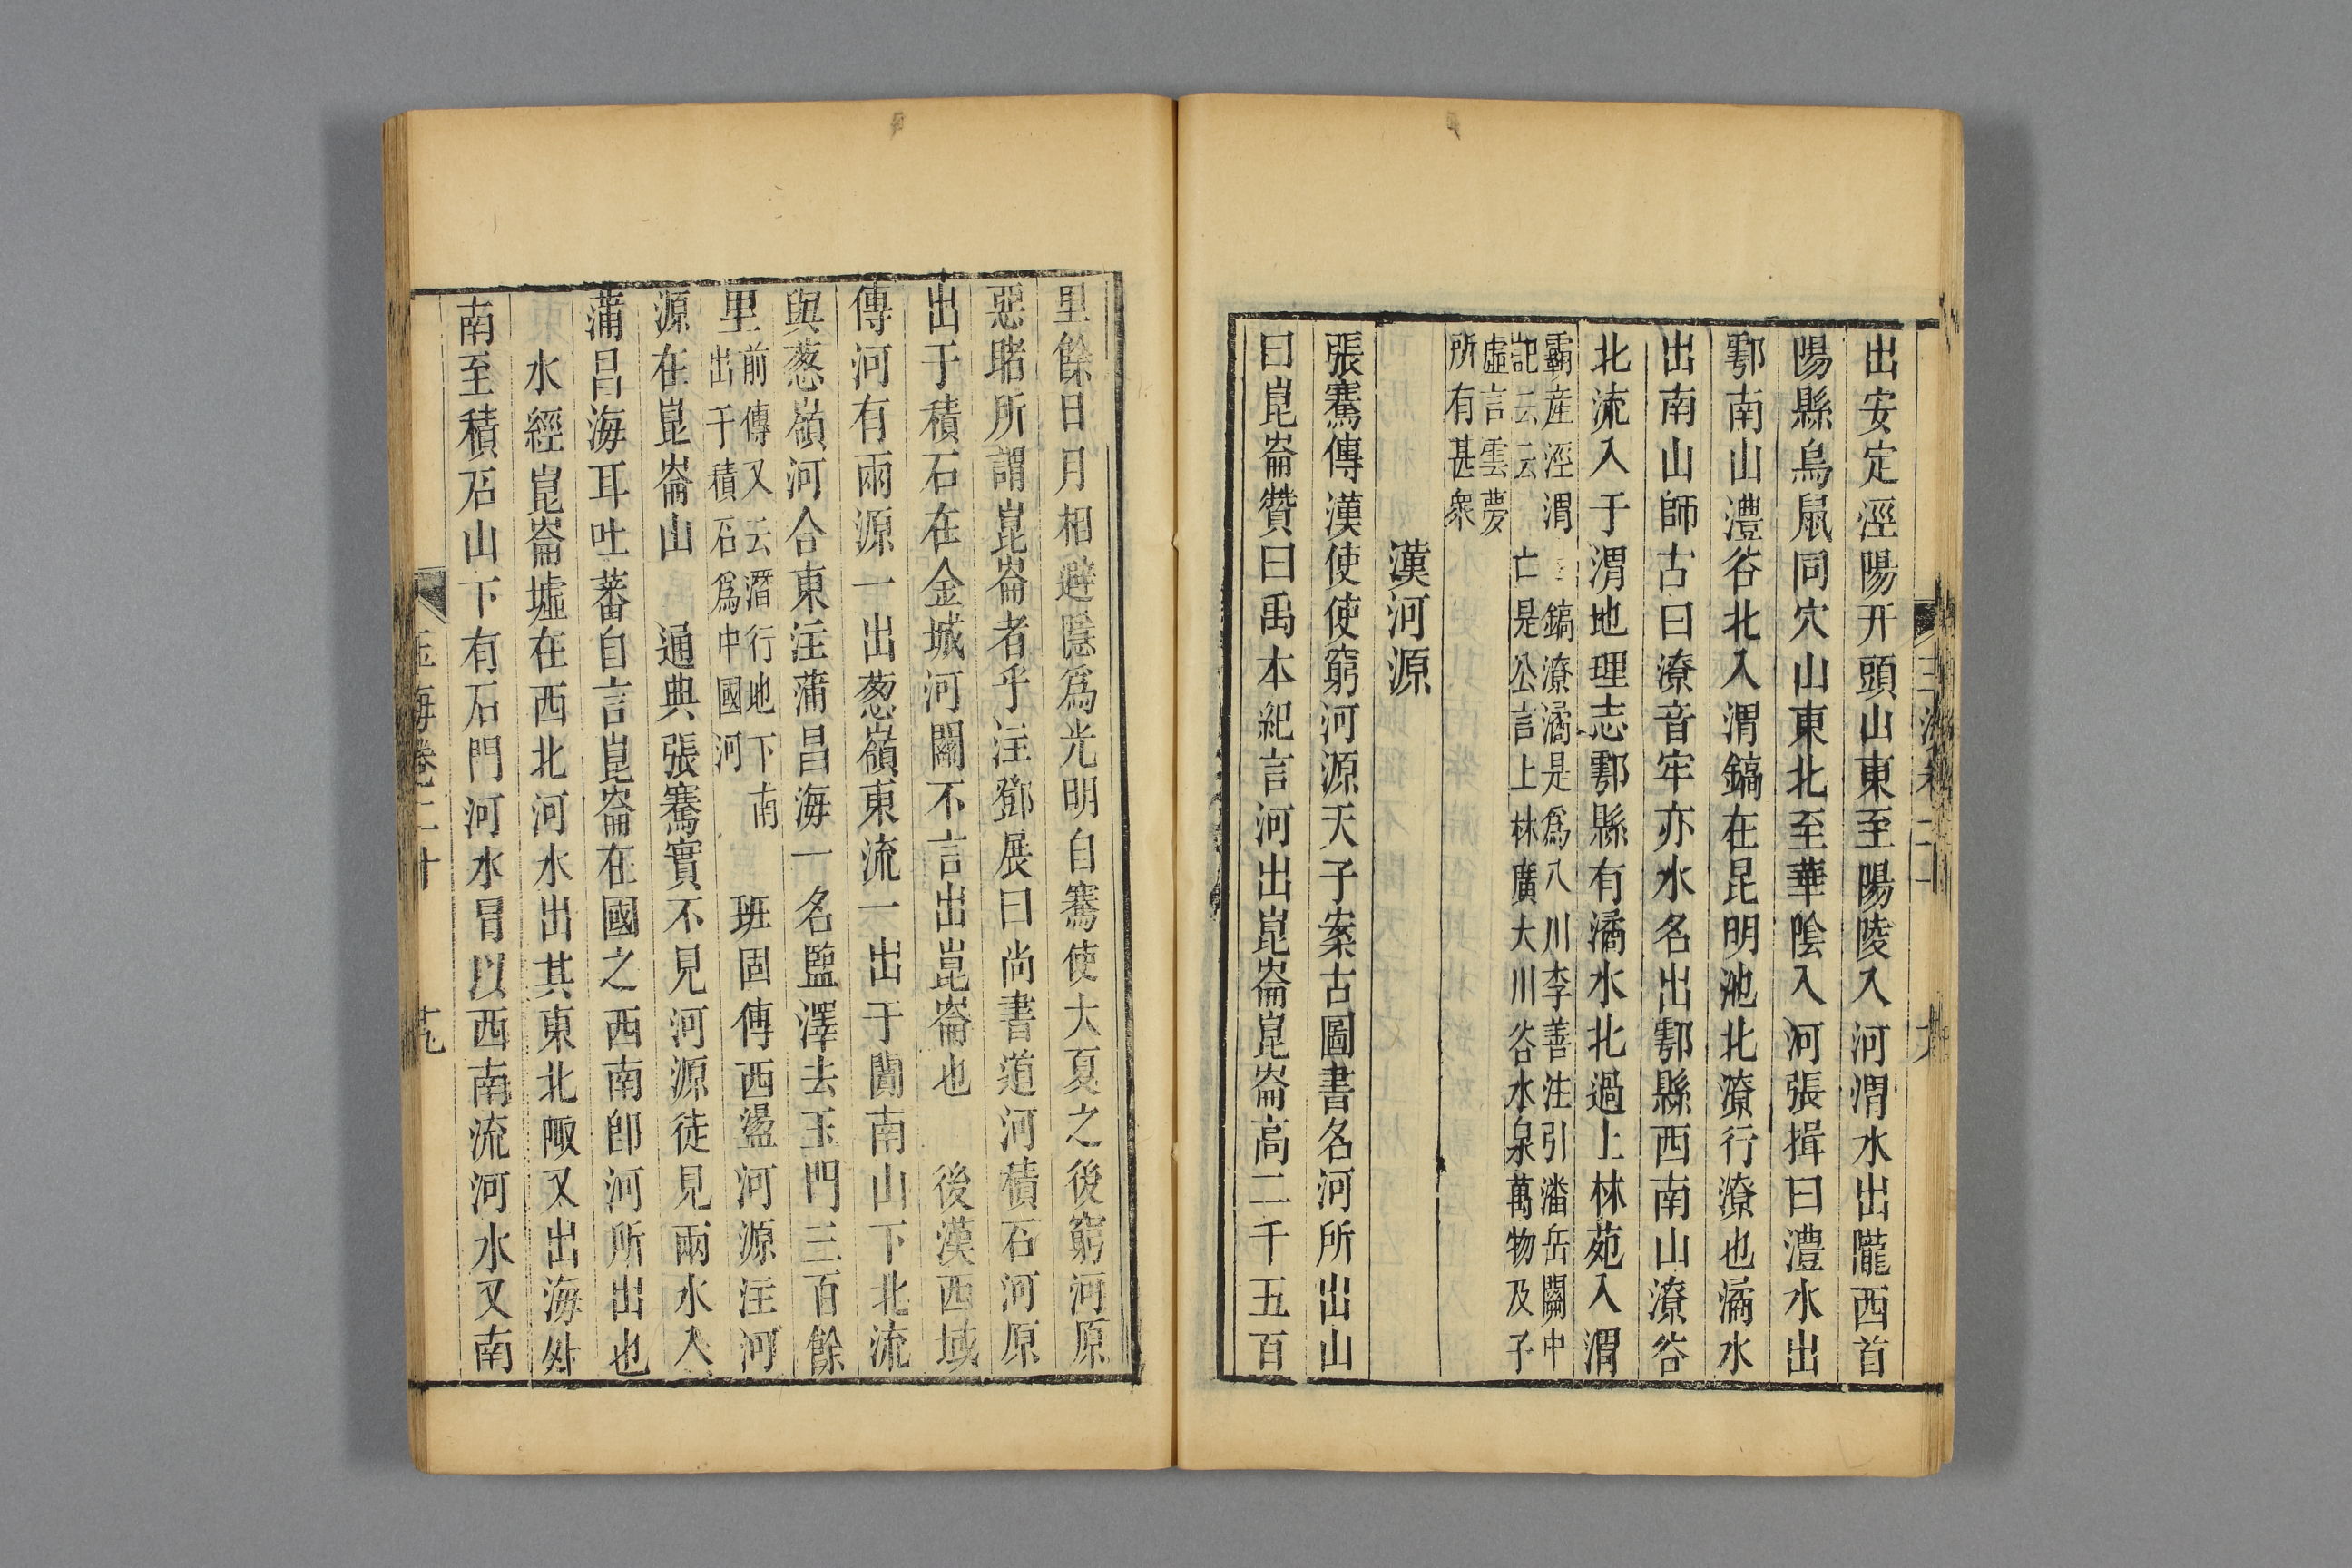 出安定涇陽幵頭山東至陽陵入河渭水出隴西首
陽縣鳥鼠同穴山東北至華陰入河張揖曰澧水出
鄠南山澧谷北入渭鎬在昆明池北潦行潦也潏水
出南山師古曰潦音牢亦水名出鄠縣西南山潦谷
北流入于渭地理志鄠縣有潏水北過上林苑入渭
霸産涇渭 鎬潦潏是爲八川李善注引潘岳關中
記云云 亡是公言上林廣大川谷水泉萬物及子
虛言雲夢
所有甚衆
漢河源
張騫傳漢使使窮河源天子案古圖書名河所出山
曰崑崙贊曰禹本紀言河出崑崙崑崙高二千五百
里餘日月相避隱爲光明自騫使大夏之後窮河原
惡睹所謂崑崙者乎注鄧展曰尚書道河積石河原
出于積石在金城河關不言出崑崙也 後漢西域
傳河有兩源一出葱嶺東流一出于闐南山下北流
與葱嶺河合東注蒲昌海一名鹽澤去玉門三百餘
里
前傳又云潛行地下南
出于積石爲中國河
班固傳西盪河源注河
源在崑崙山 通典張騫實不見河源徒見兩水入
蒲昌海耳吐蕃自言崑崙在國之西南卽河所出也
水經崑崙墟在西北河水出其東北陬又出海外
南至積石山下有石門河水冒以西南流河水又南
玉海卷二十